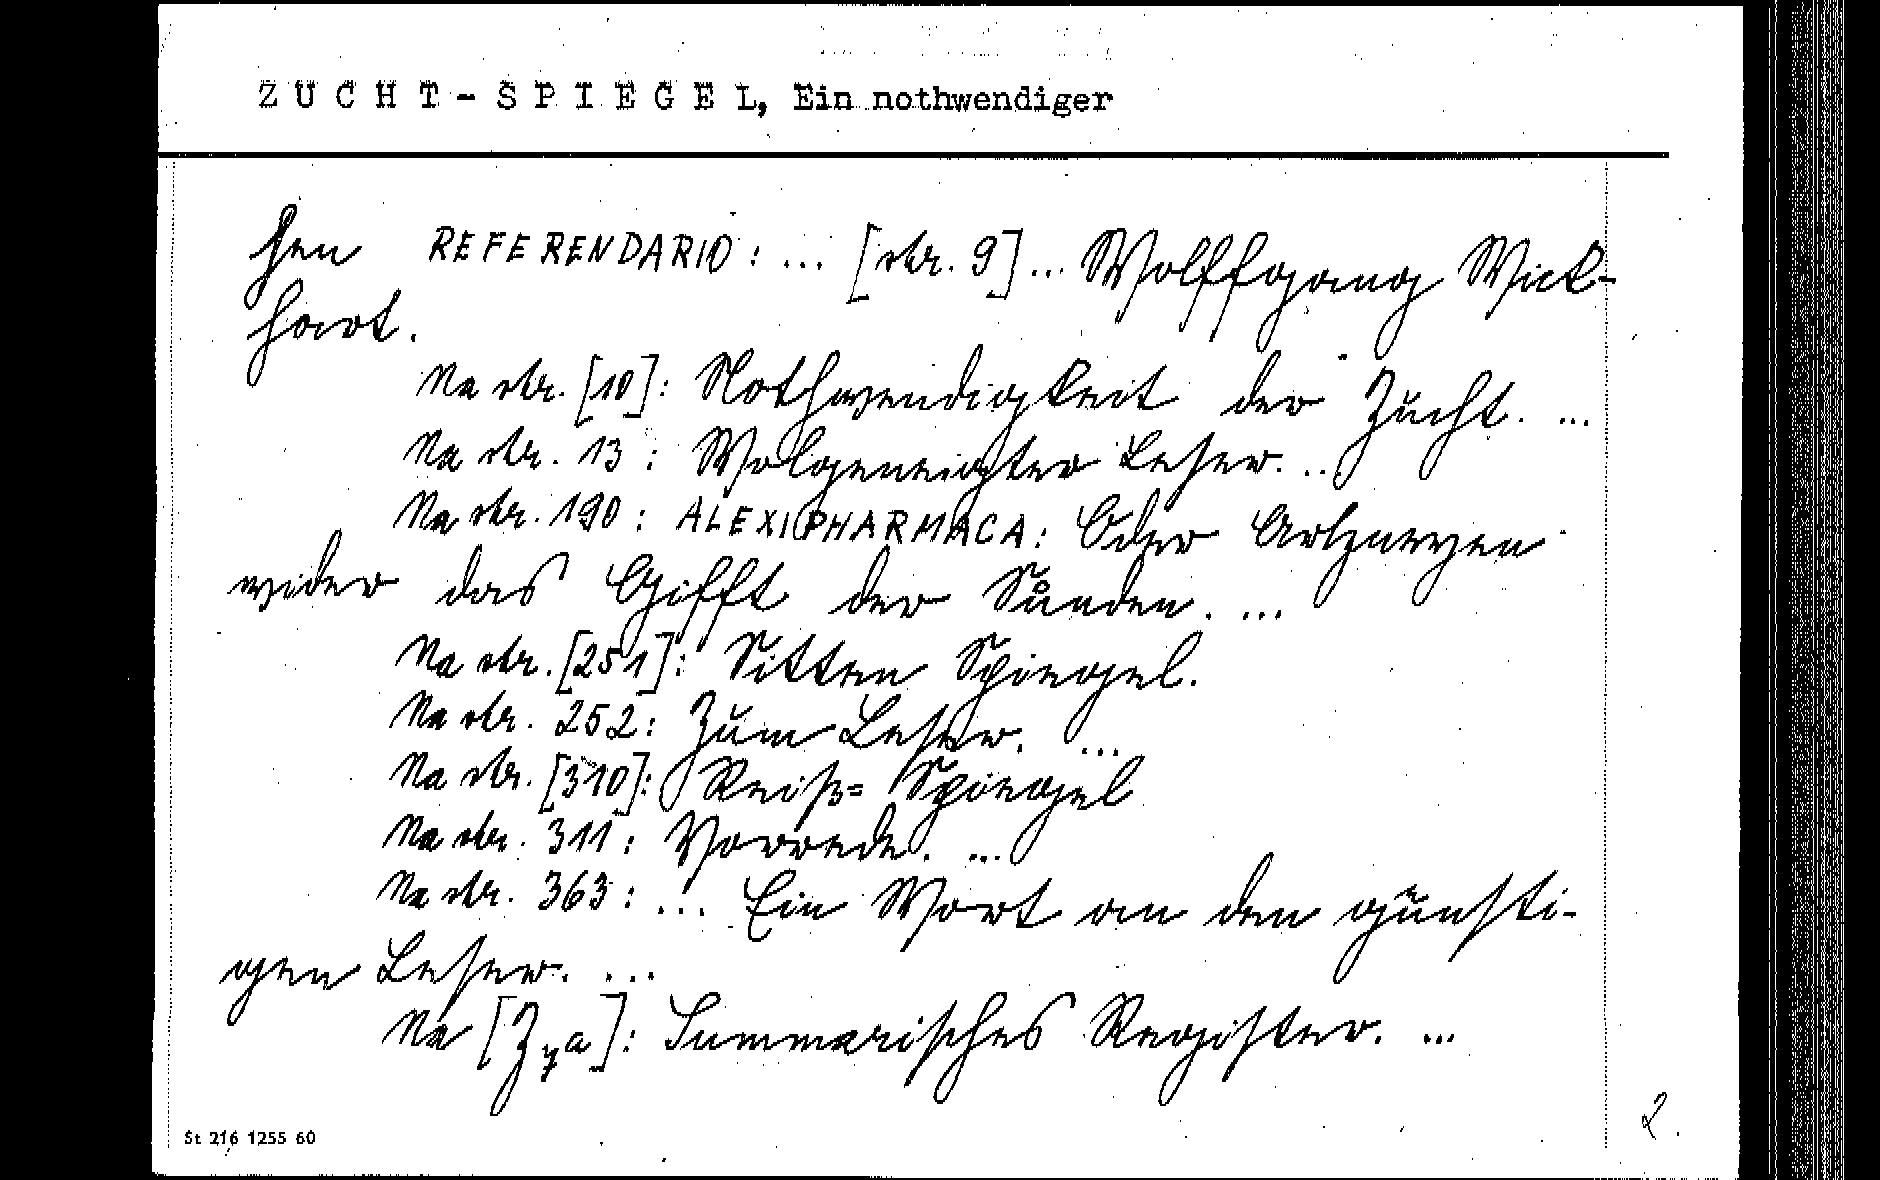 ZUCHT-SPIEGEL, Ein nothwendiger
hen REFERENDARIO: ... [str. 9] ... Wolffgang Wick-
hart.
Na str. [10]: Nothwendigkeit der Zucht. ...
Na str. 13: Wolgeneigter Leser. ...
Na str. 190: ALEXIPHARMACA: Oder Artzneyen
wider das Gifft der Sůnden. ...
Na str. [251]: Sitten Spiegel.
Na str. 252: Zum Leser. ...
Na str. [310]: Reiß= Spiegel
Na str. 311: Vorrede. ...
Na str. 363: ... Ein Wort an den günsti-
gen Leser. ...
Na [Z7a]: Summarisches Register. ...
St 216 1255 60
2.